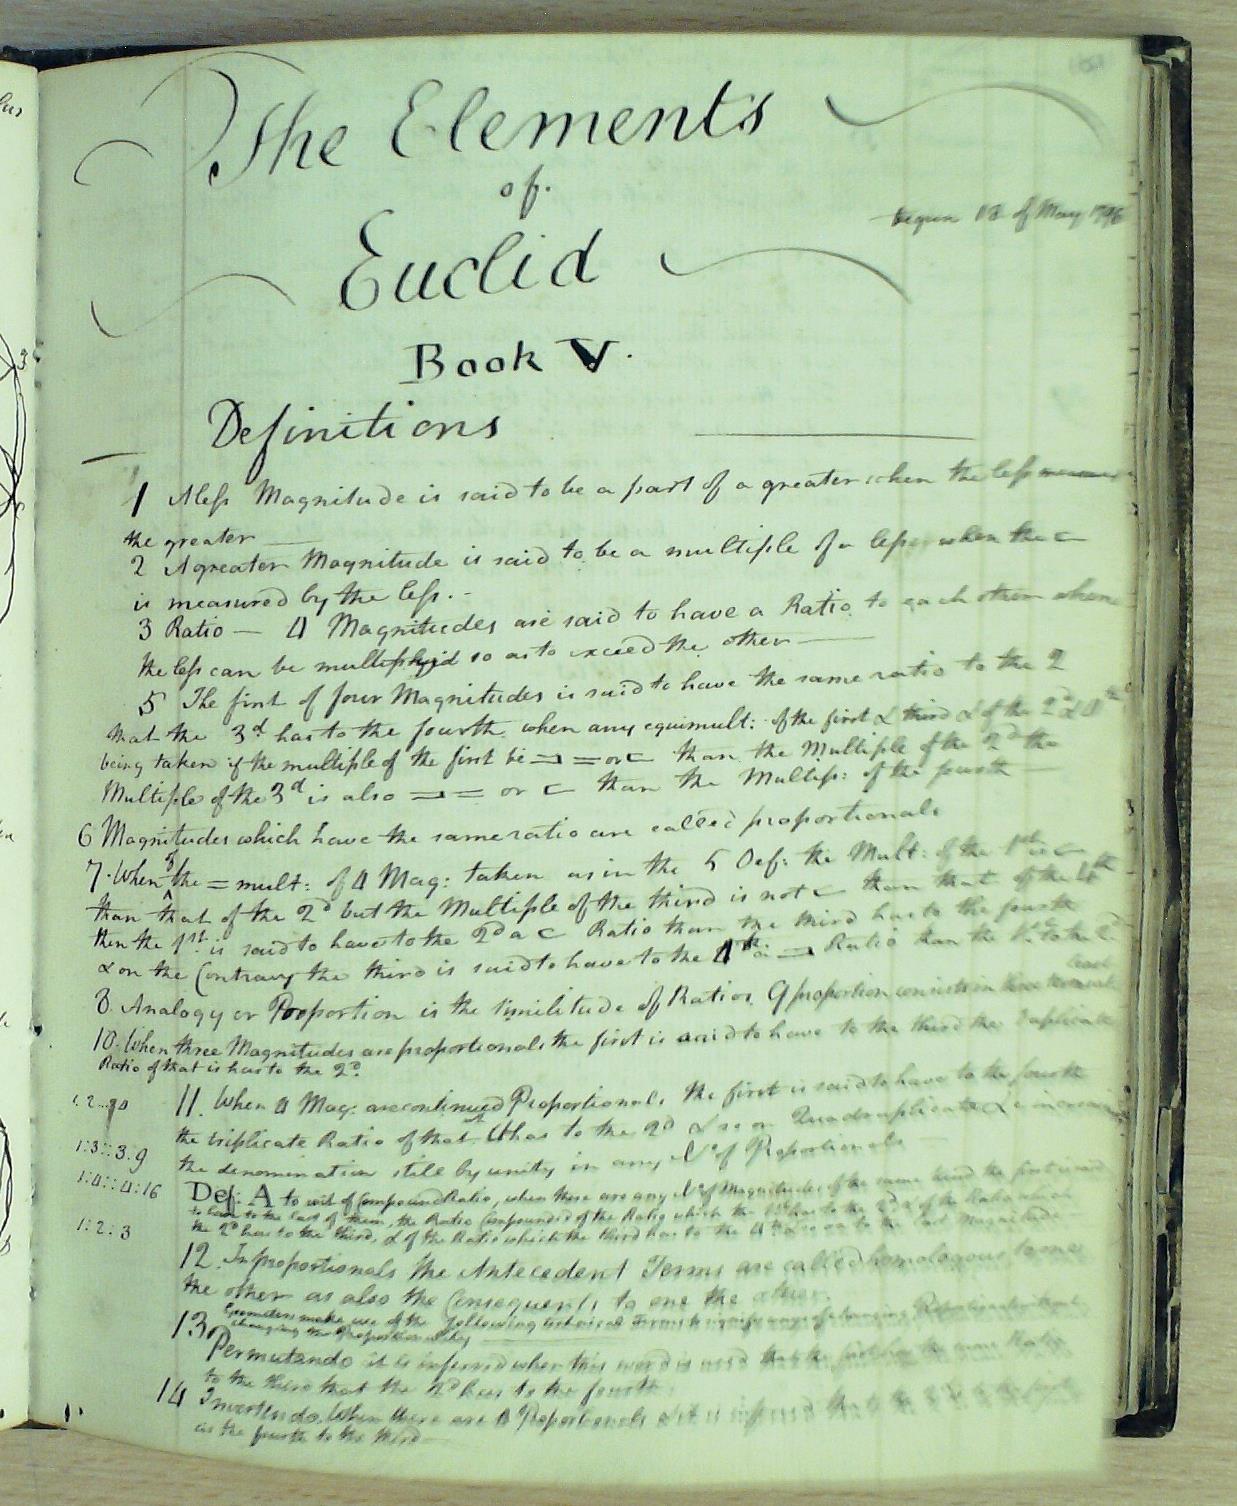 The Elements
of
begun 18 of May 1796
Euclid
Book V.
Definitions
1 A less Magnitude is said to be a part of a greater when the less
the greater
2 A greater Magnitude is said to be a multiple of a less when the ⊏
is measured by the less.
3 Ratio — 4 Magnitudes are said to have a Ratio to each other when
the less can be multiplyid so as to exceed the other
5 The first of four Magnitudes is said to have the same ratio to the 2
that the 3d has to the fourth when any equimult: of the first & third & of the 2d & 4th
being taken if the multiple of the first be ⊐ = or ⊏ than the Multiple of the 2d the
Multiple of the 3d is also ⊐ = or ⊏ than the Multip: of the fourth
6 Magnitudes which have the same ratio are called proportionals
7. When the = mult: of 4 Mag: taken as in the 5 Def: the Mult: of the 1st is ⊏
than that of the 2d but the Multiple of the third is not ⊏ than that of the 4th
then the 1st is said to have to the 2d a ⊏ Ratio than the third has to the fourth
& on the Contrary the third is said to have to the 4th a ⊐ Ratio than the 1st to the 2d
8 Analogy or Proportion is the similitude of Ratios 9 proportion consists in three terms at
least
10. When three Magnitudes are proportionals the first is said to have to the third the Duplicate
Ratio of that is has to the 2d.
11. When 4 Mag: are continued Proportionals the first is said to have to the fourth
the triplicate Ratio of that it has to the 2d & so on Quadruplicate &c increasing
1:3::3:9
the denomination still by unity in any No of Proportionals
1:4::4:16
Def: A to wit of Compound Ratio, when there are any No of Magnitudes of the same kind the first is said
to have to the last of them, the Ratio Compounded of the Ratio which the 1st has to the 2d & of the Ratio which
1:2:3
the 2d has to the third, & of the Ratio which the third has to the 4th & so on to the last Magnitude
12. In proportionals the Antecedent Terms are called homologous to one
the other as also the Consequents to one the other.
13 Geometers make use of the following technical Terms to signify ways of changing Proportionals without
changing the Proportionality
Permutando it is inferred when this word is used that the first has the same Ratio
to the third that the 2d has to the fourth
14 Invertendo. When there are 4 Proportionals & it is inferred that
as the fourth to the third